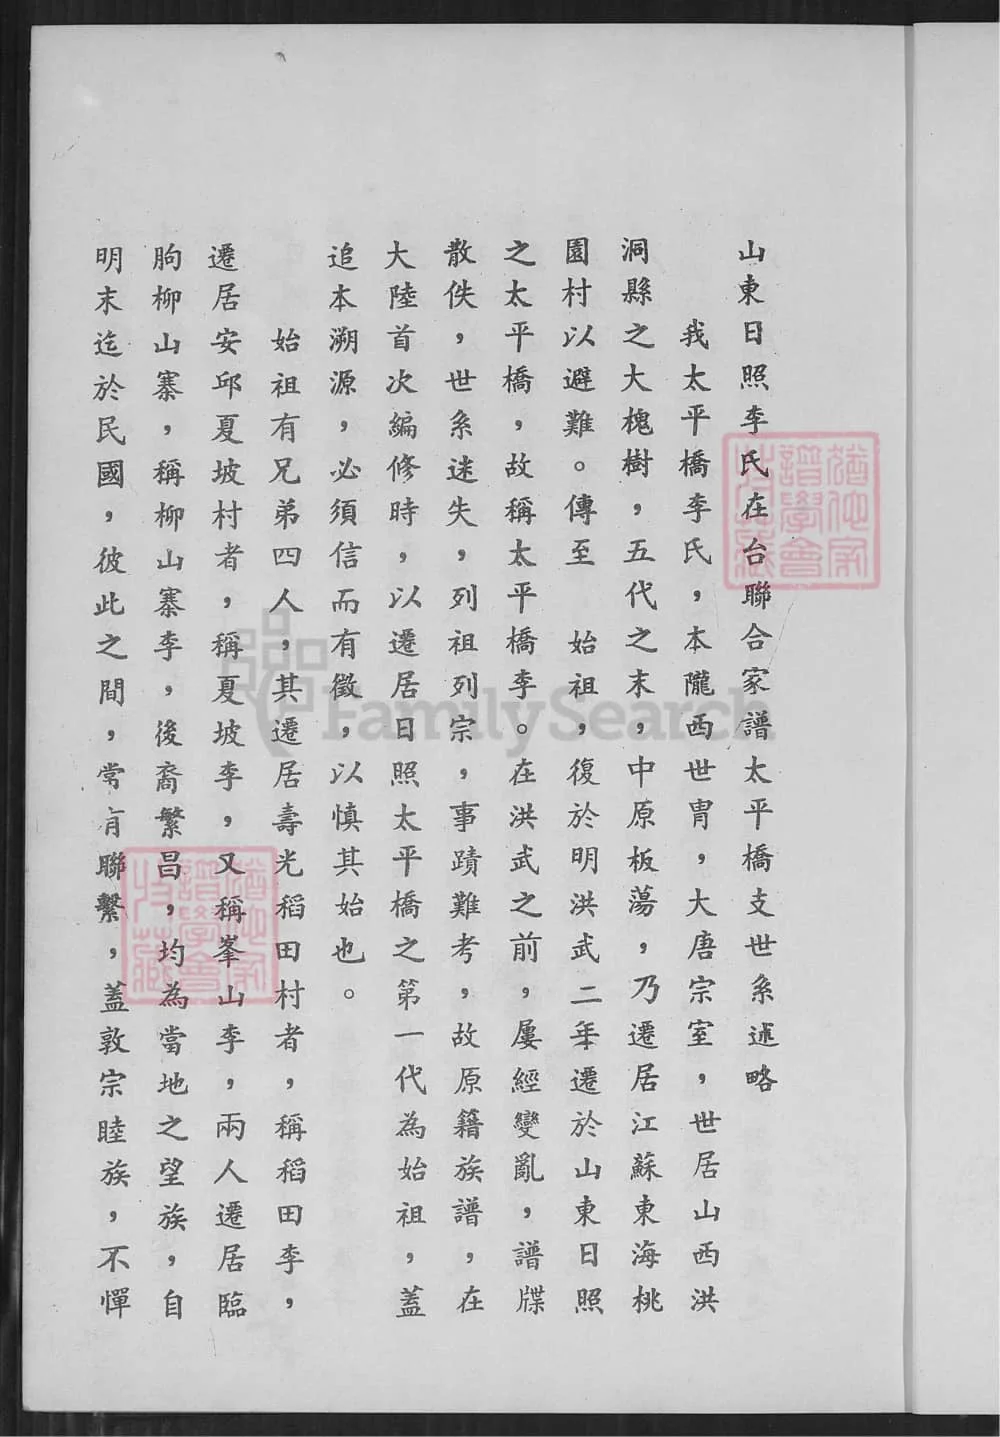 山東日照李氏在台聯合家譜太平橋支世系述略
我太平橋李氏，本隴西世胄，大唐宗室，世居山西洪
洞縣之大槐樹，五代之末，中原板蕩，乃遷居江蘇東海桃
園村以避難。傳至　始祖，復於明洪武二年遷於山東日照
之太平橋，故稱太平橋李。在洪武之前，屢經變亂，譜牒
散佚，世系迷失，列祖列宗，事蹟難考，故原籍族譜，在
大陸首次編修時，以遷居日照太平橋之第一代為始祖，蓋
追本溯源，必須信而有徵，以慎其始也。
始祖有兄弟四人，其遷居壽光稻田村者，稱稻田李，
遷居安邱夏坡村者，稱夏坡李，又稱峯山李，兩人遷居臨
朐柳山寨，稱柳山寨李，後裔繁昌，均為當地之望族，自
明末迄於民國，彼此之間，常有聯繫，蓋敦宗睦族，不憚
FamilySearch